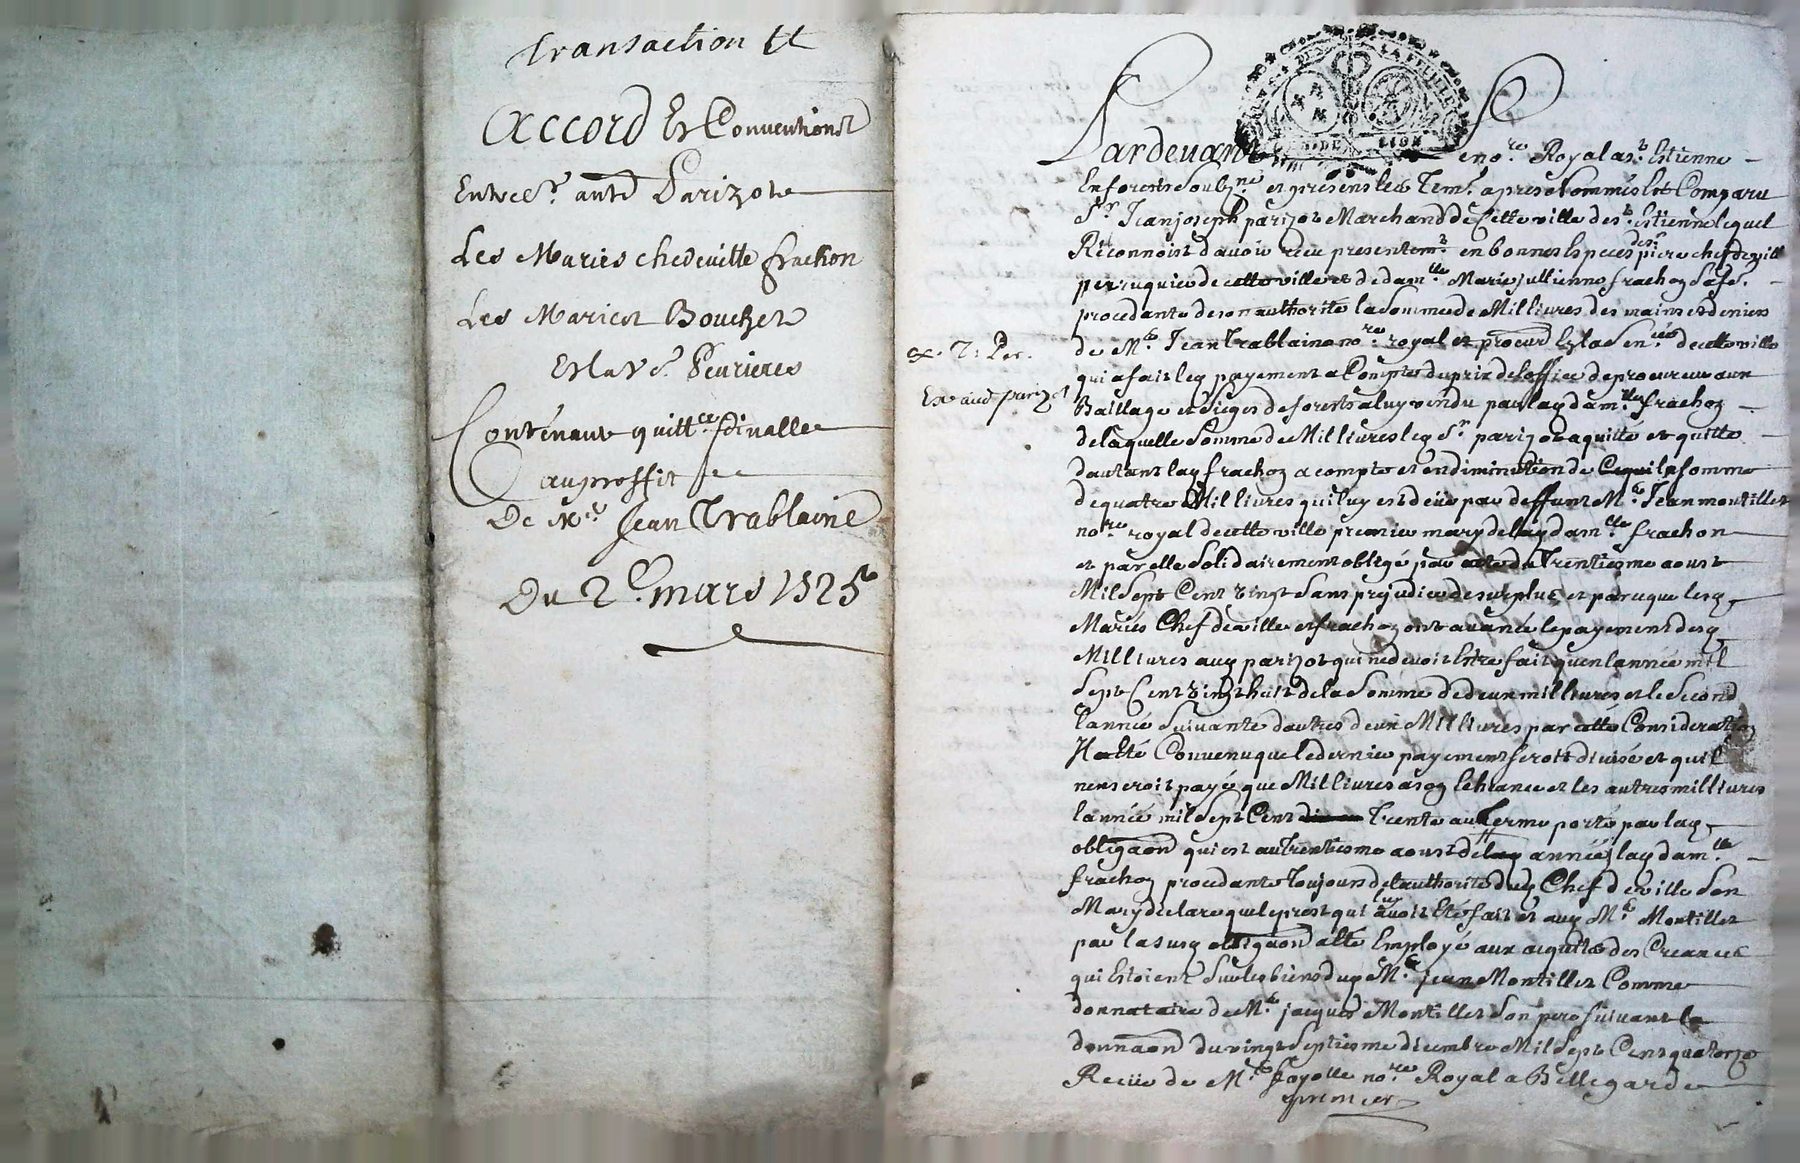 transaction Et
Accord Et Conventions
Entre Sr. Parizote
Les Maries chedeville frachon
Les Maries Bouchet
Et la Ve. Peurieres
Contenant quittce finalle
auproffit
De Me Jean Trablaine
Du 2e. mars 1525
Pardevant
nore. Royal a St. Estienne
En forests soubzne. et presens les Tems. apres nommés Est Comparu
Sr. Jean joseph parizot Marchand de Cette ville de St. Estienne lequel
Reconnoist davoir reçu presentemt. en bonnes Especes de Sr. pierre chefdeville
perruquier de cette ville et de damlle Marie jullienne frachon sa fe.
procedante de son authorité la somme de Mil livres des mains et deniers
de Me. Jean Trablaine nore. royal et procur Ez la Senée. de cette ville
qui a fait le payement a Compte du prix de loffice de procureur aux
Baillage et sieges de forests a luy vendu par lad damlle frachon
Ex aud parizot
de laquelle somme de Mil livres led Sr. parizot a quitté et quitte
dautant lad frachon a compte et en diminution de la somme
de quatre Mil livres qui luy est deüe par deffunt Me. Jean montillet
nore royal de cette ville premier mary de lad damlle frachon
et par elle solidairement obligé par acte du Trentiesme aoust
Mil Sept Cent vingt sans prejudice de surplus et parceque lesd
Maries Chefdeville et frachon ont avancé le payement desd
Mil livres aud parizot qui ne devoit Etre fait quen lannée mil
sept Cent vingt huit de la somme de deux mil livres et le second
lannée suivante dautres deux Mil livres par cette Consideration
Il a Eté Convenu que le dernier payement seroit divisé et quil
nen seroit payé que Mil livres a son Echeance et les autres mil livres
lannée mil sept Cent Trente au terme porté par lad
obligaon qui est au Trentiesme aoust de lad année, lad damlle
frachon procedante toujours de lauthorité dud Chefdeville son
Mary declare que le prest qui avoit Eté fait et aud Me. Montillet
par la susd obligaon a Eté Employé aux aquits des Creances
qui Estoient sur les biens dud Me. jean Montillet Comme
donnataire de Me. jacques Montillet son pere suivant la
donnaon du vingt septiesme decembre Mil sept Cent quatorze
Reçüe de Me. foyolle nore Royal a Bellegarde
premier